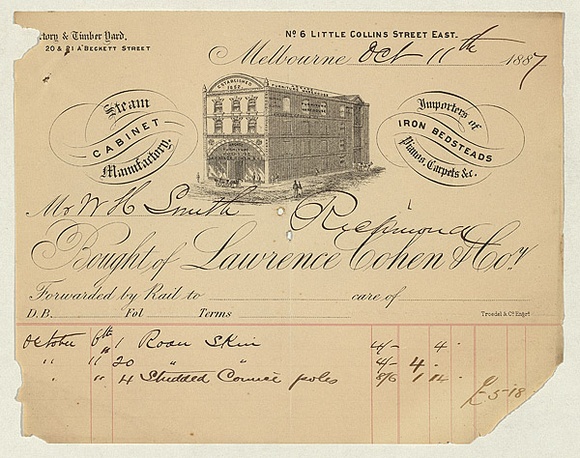 ctory & Timber Yard,
20 & 21 A'Beckett Street
No 6 Little Collins Street East.
Melbourne Oct 11th 1887
ESTABLISHED
1852
Steam
CABINET
Manufactory
Importers of
IRON BEDSTEADS
Pianos, Carpets &c.
Mr W H Smith Richmond
Bought of Lawrence Cohen & Coy
Forwarded by Rail to care of
D.B. Fol Terms
Troedel & Co Engrs
October 6th 1 Roan Skin 4/- 4 "
" " 20 " " 4/- 4 "
" " 4 Studded Cornice poles 8/6 1 14 "
£5-18